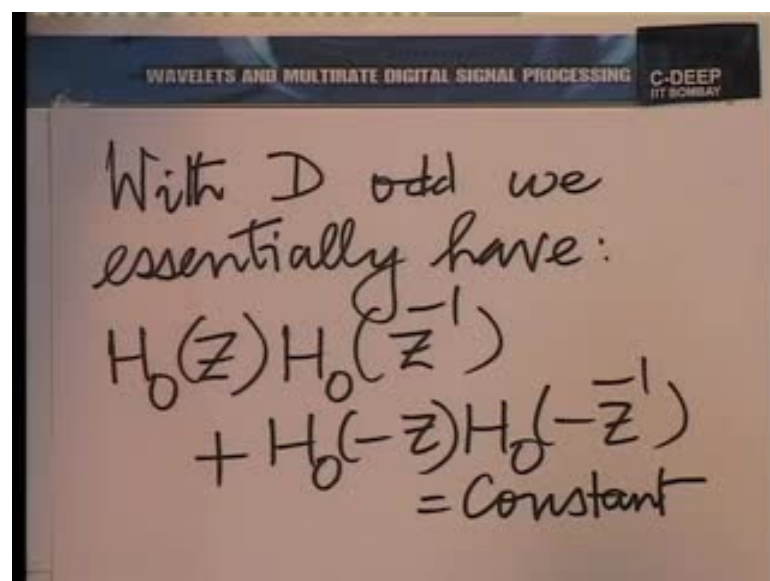 WAVELETS AND MULTIRATE DIGITAL SIGNAL PROCESSING
C-DEEP
IIT BOMBAY
With D odd we
essentially have:
H₀(Z)H₀(Z⁻¹)
+ H₀(-Z)H₀(-Z⁻¹)
= Constant